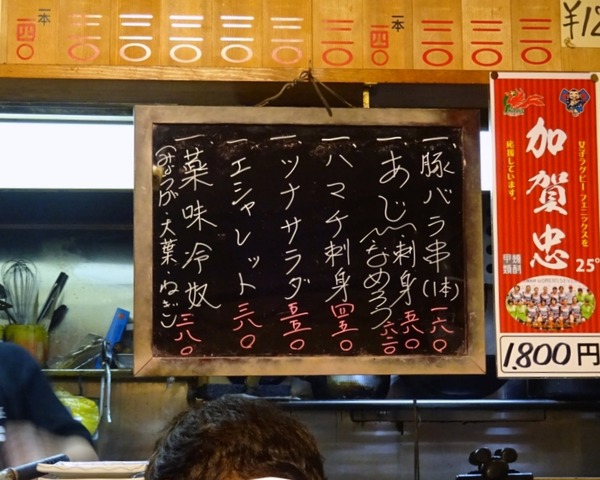 一本
一四〇
二二〇
三三〇
二二〇
二二〇
三三〇
三二〇
一本
一四〇
三三〇
三三〇
三三〇
¥12
一、豚バラ串(1本) 一八〇
一、あじ 刺身 五八〇
なめろう 六二〇
一、ハマチ刺身 四五〇
一、ツナサラダ 五五〇
一、エシャレット 三八〇
一、薬味冷奴 三八〇
(みょうが・大葉・ねぎ)
女子ラグビー フェニックスを
応援しています。
加賀忠
甲類焼酎
25°
1,800円